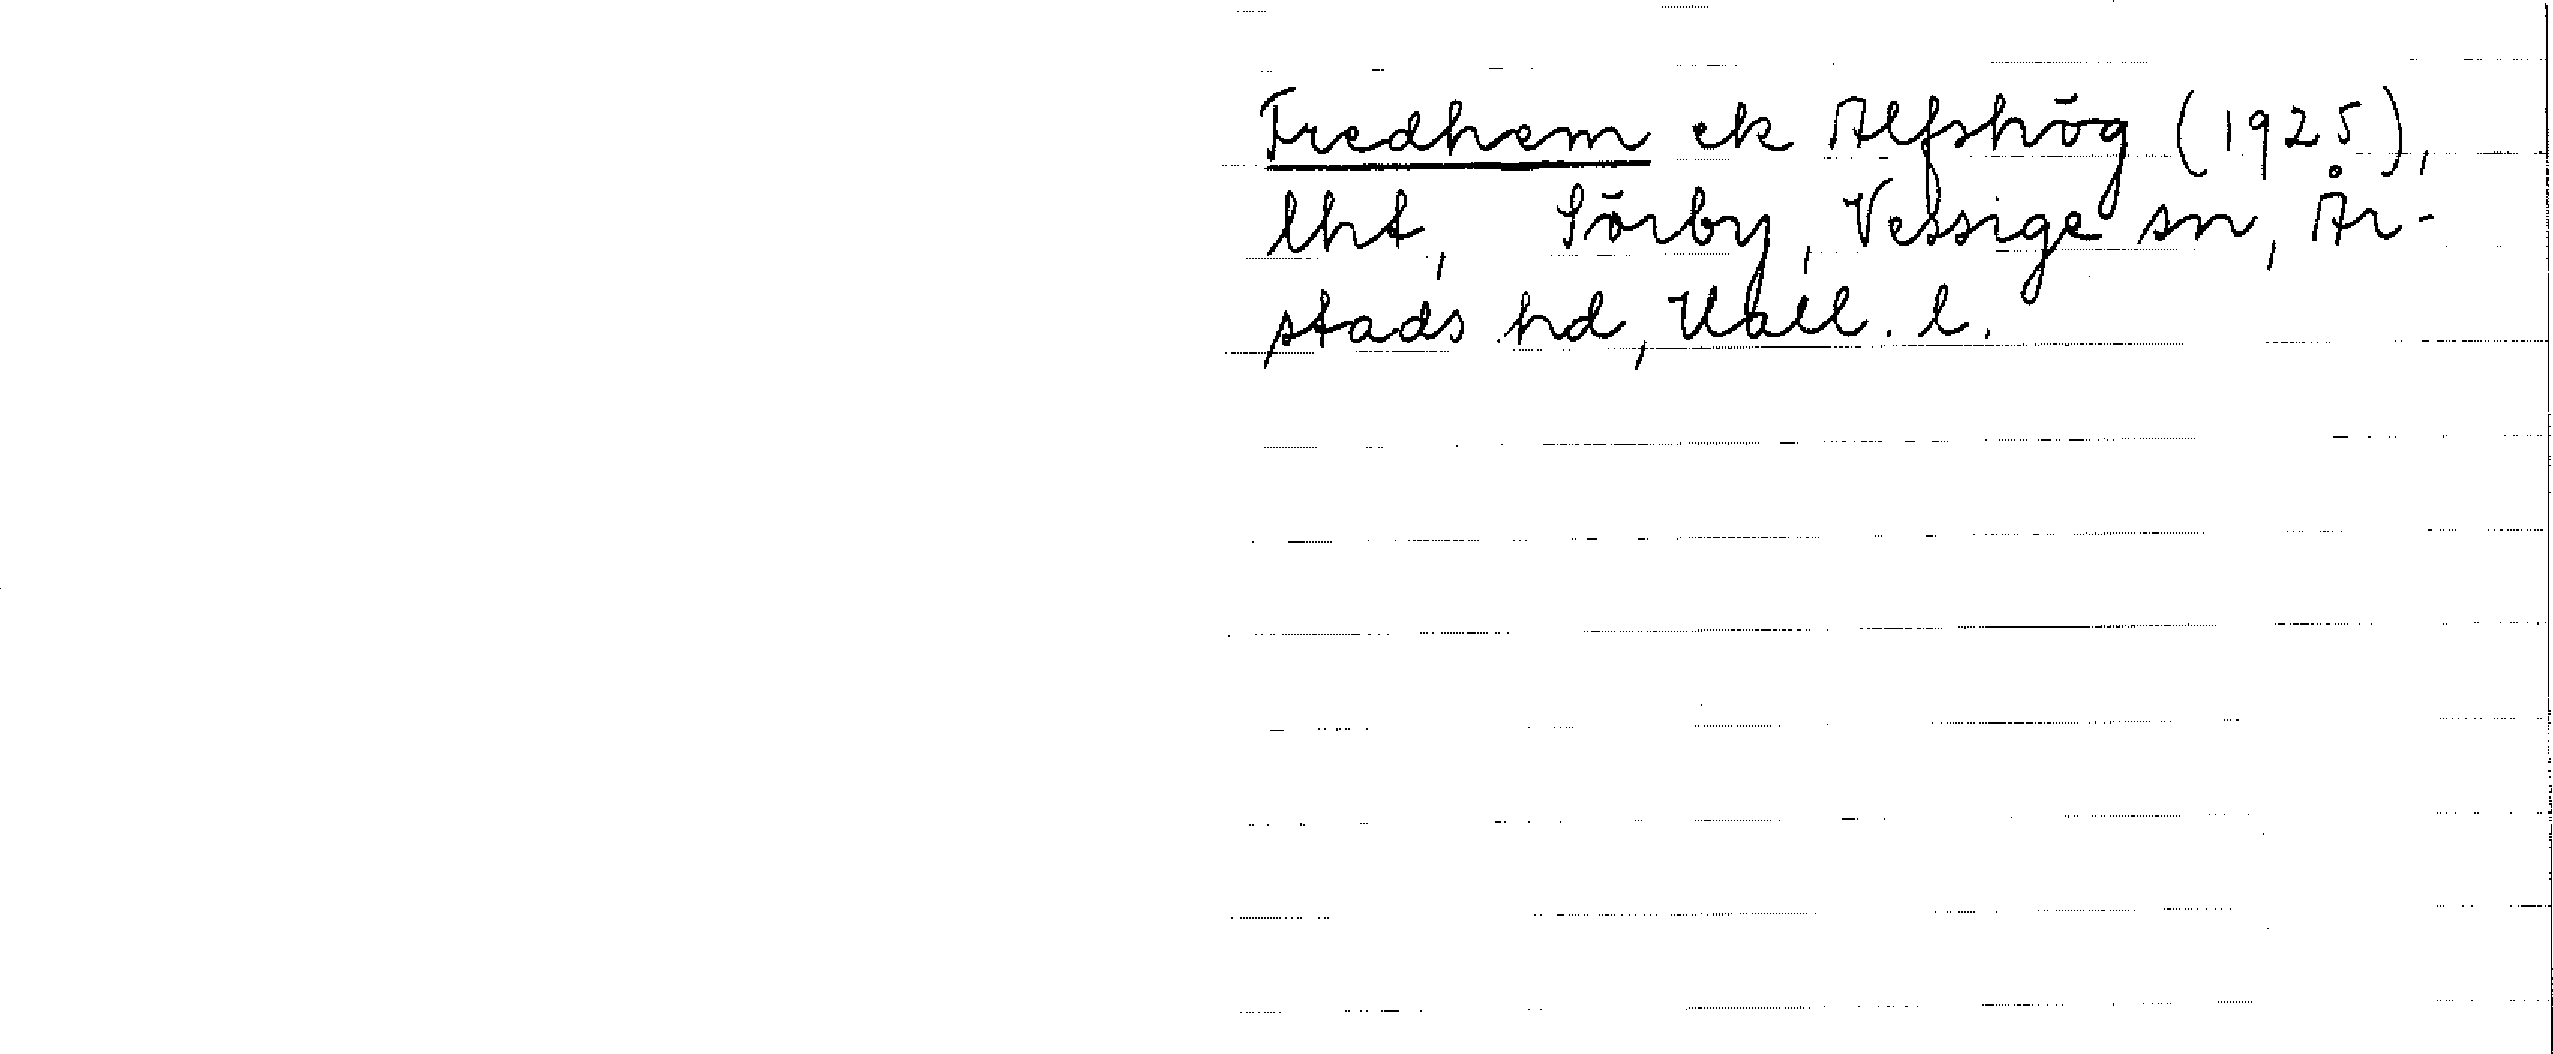 Fredhem ek Alfshög (1925),
lht, Sörby, Vessige sn, År-
stads hd, Hall. l.